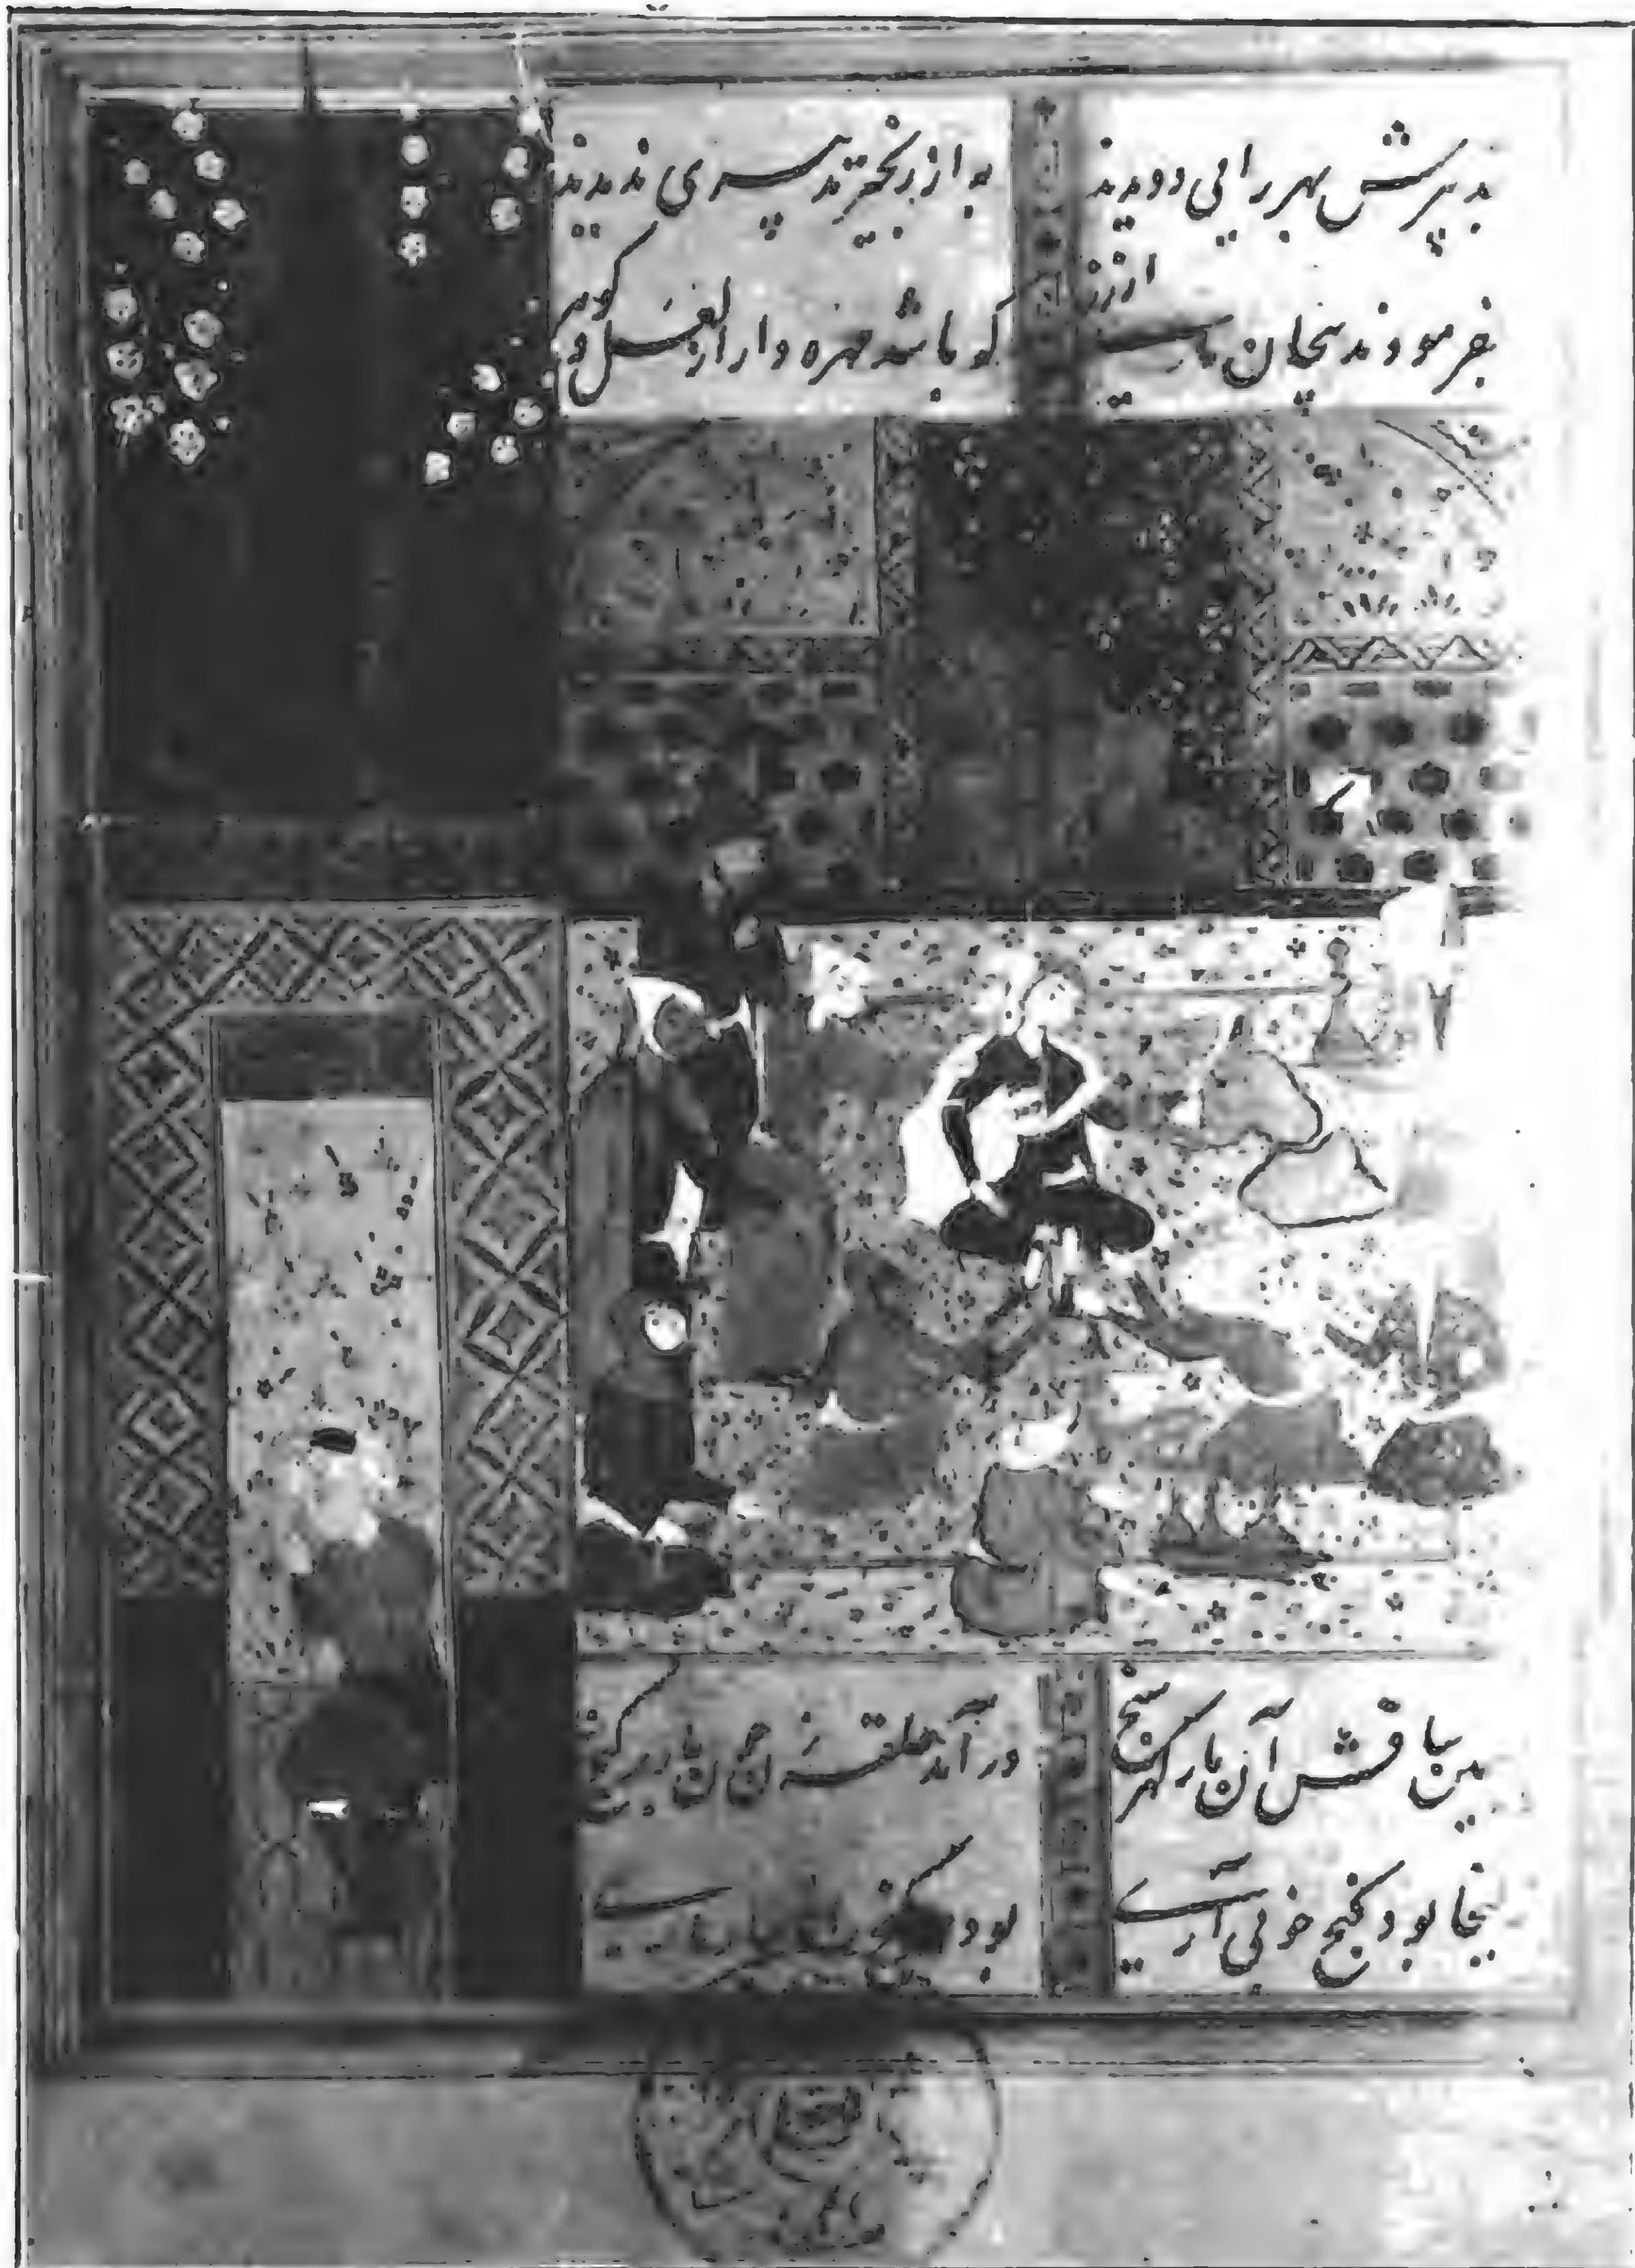 بهر رایی دویدند به از زنجیر تدبیری ندیدند
بفرمودند پیچان ماری از زر که باشد مهره دار از لعل و گوهر
ساقش آن مار گهر سنج در آمد حلقه زن چون مار بر گنج
بود گنج خوبی آری بود هر گنج را ناچار ماری